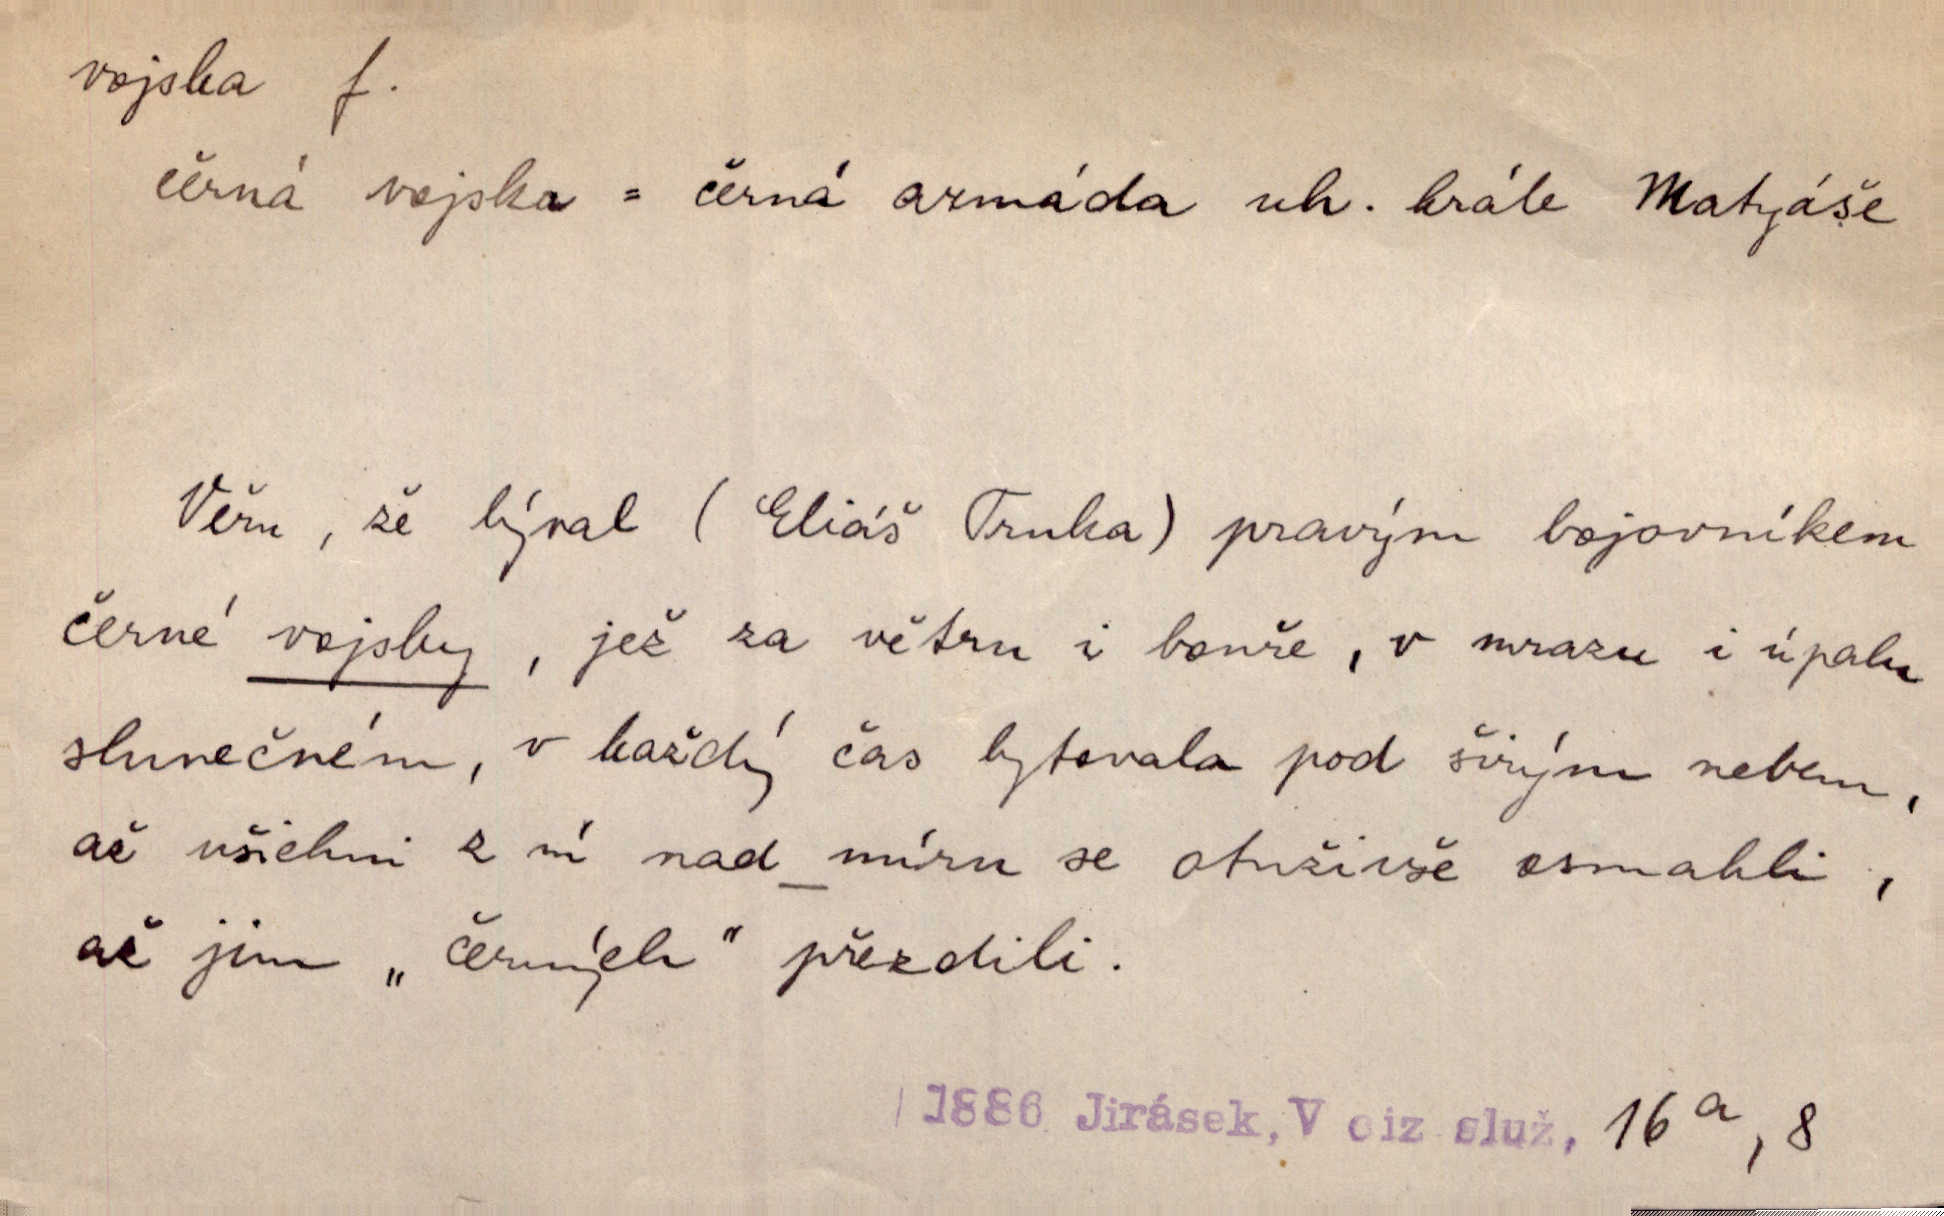 vojska f.
černá vojska = černá armáda uh. krále Matyáše
Věru, že býval (Eliáš Truka) pravým bojovníkem
černé vojsky, jež za větru i bouře, v mrazu i úpalu
slunečném, v každý čas bytovala pod širým nebem,
až všichni z ní nad_míru se otuživše osmahli,
až jim „černých" přezdili.
1886 Jirásek, V ciz služ, 16a, 8